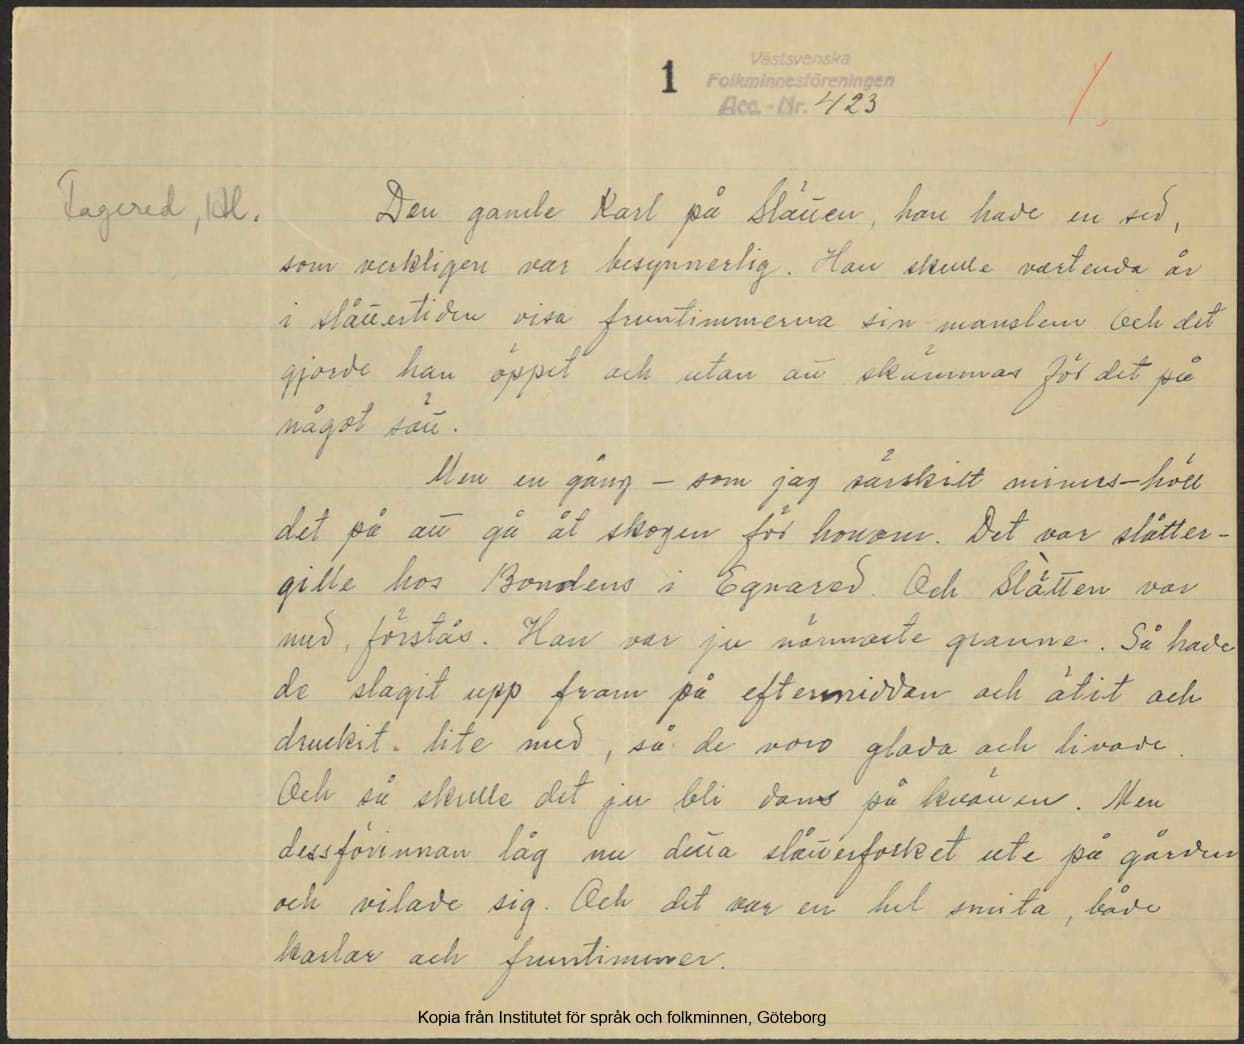 1
Västsvenska
Folkminnesföreningen
Acc. - Nr. 423
Fagered, Hl.
Den gamle Karl på Slätten, han hade en sed,
som verkligen var besynnerlig. Han skulle vartenda år
i slåttertiden visa fruntimmerna sin manslem och det
gjorde han öppet och utan att skämmas för det på
något sätt.
Men en gång – som jag särskilt minns – höll
det på att gå åt skogen för honom. Det var slåtter-
gille hos Bondens i Egnared. Och Slätten var
med, förstås. Han var ju närmaste granne. Så hade
de slagit upp fram på eftermiddan och ätit och
druckit lite med, så de voro glada och livade.
Och så skulle det ju bli dans på kvällen. Men
dessförinnan låg nu detta slåtterfolket ute på gården
och vilade sig. Och det var en hel smita, både
karlar och fruntimmer.
Kopia från Institutet för språk och folkminnen, Göteborg